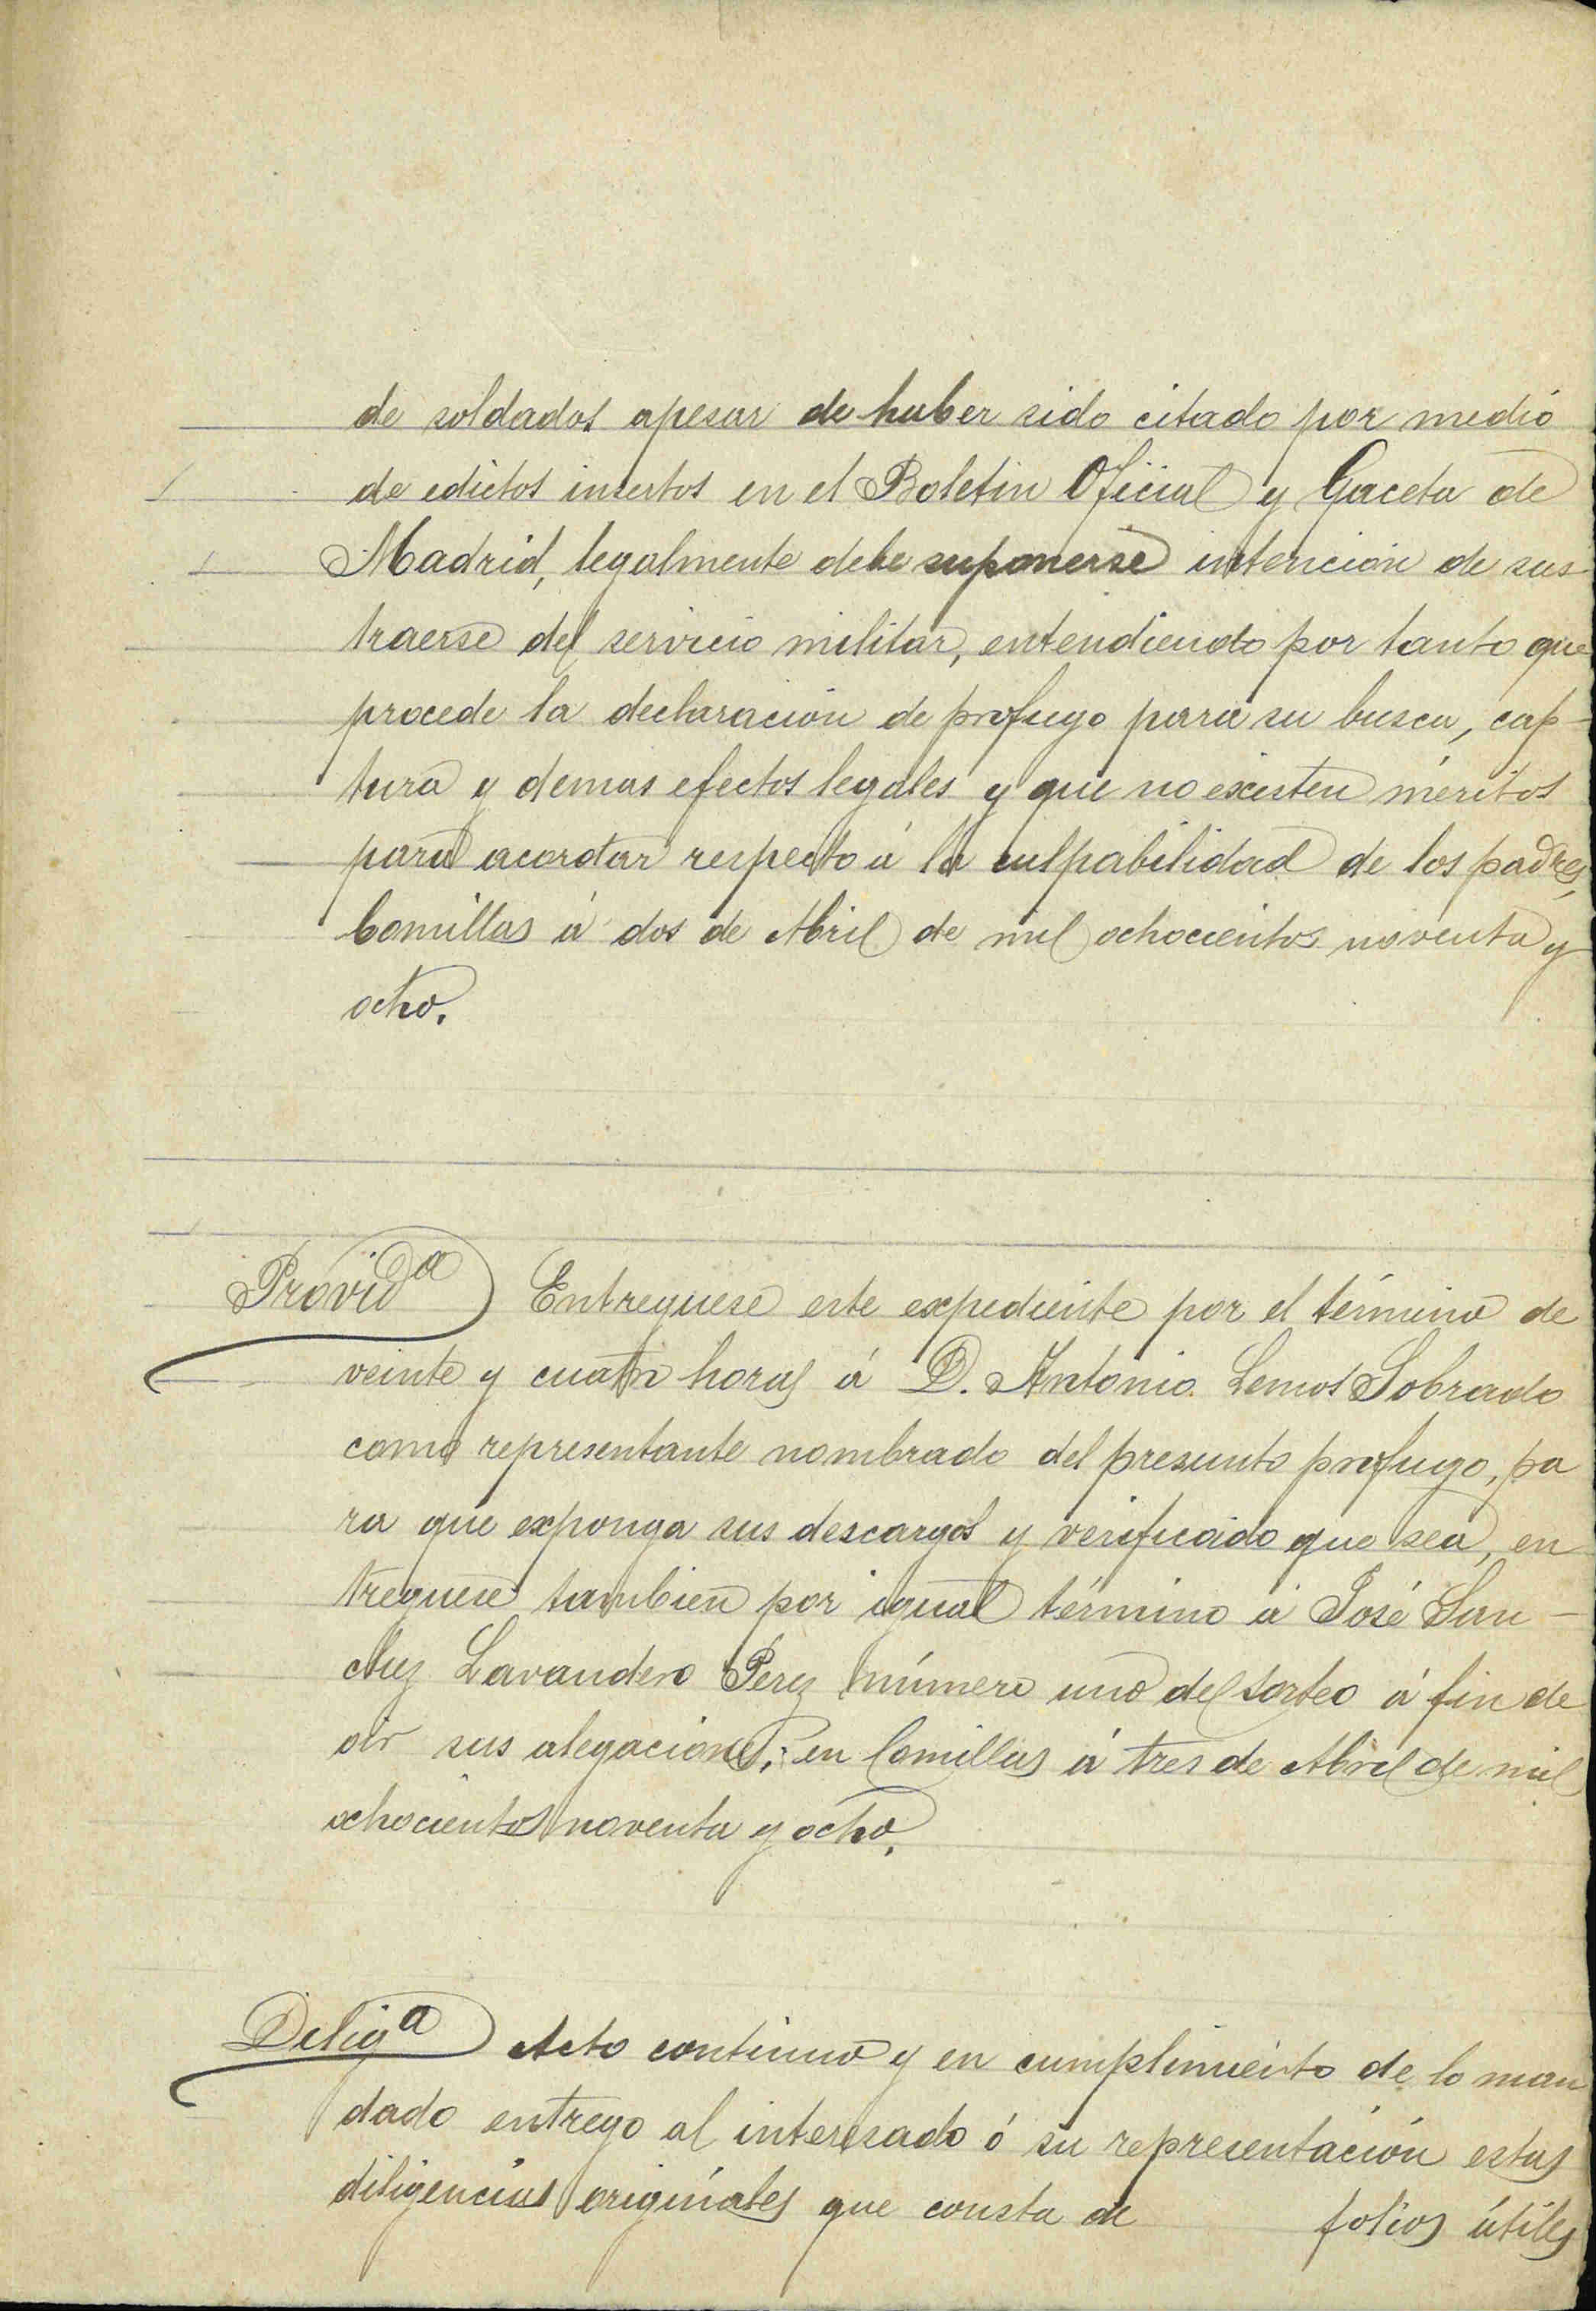 de soldados apesar de haber sido citado por medio
de edictos insertos en el Boletin Oficial y Gaceta de
Madrid, legalmente debe suponerse intención de sus-
traerse del servicio militar, entendiendo por tanto que
procede la declaración de profugo para su busca, cap-
tura y demas efectos legales y que no existen méritos
para acordar respecto á la culpabilidad de los padres,
Comillas á dos de Abril de mil ochocientos noventa y
ocho.
Provid.ª Entreguese este expediente por el término de
veinte y cuatro horas á D. Antonio Lemos Sobrado
como representante nombrado del presunto profugo, pa
ra que exponga sus descargos y verificado que sea, en
treguese tambien por igual término á José San-
chez Lavandero Perez número uno del sorteo á fin de
oir sus alegaciones; en Comillas á tres de Abril de mil
ochocientos noventa y ocho.
Deligª Acto continuo y en cumplimiento de lo man
dado entrego al interesado ó su representación estas
diligencias originales que consta de folios útiles